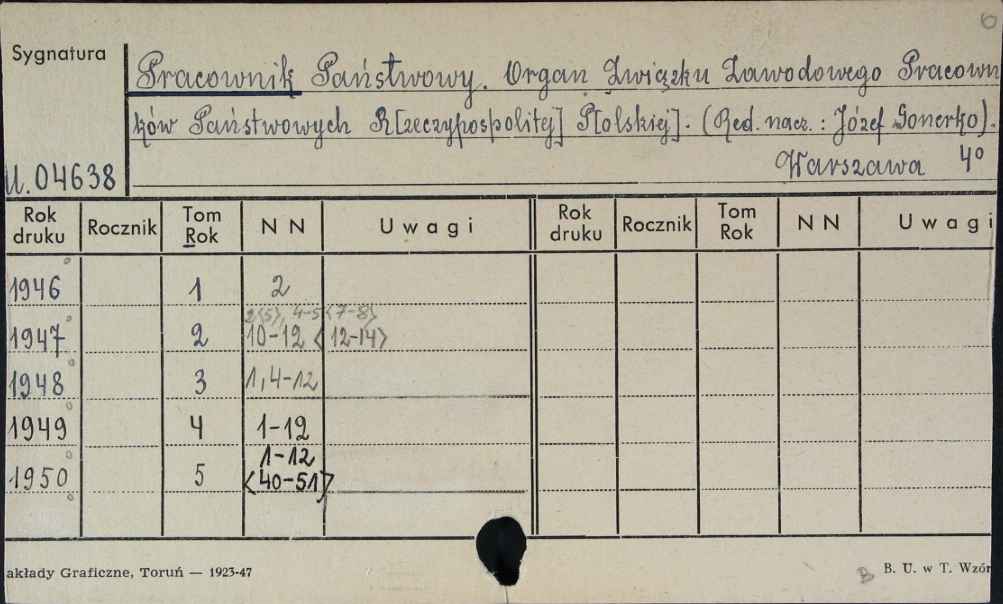 6
Sygnatura
Pracownik Państwowy. Organ Związku Zawodowego Pracowni
ków Państwowych R[zeczypospolitej] P[olskiej]. (Red. nacz.: Józef Gonerko).
U.04638 Warszawa 4°
Rok druku Rocznik Tom Rok N N Uwagi Rok druku Rocznik Tom Rok N N Uwagi
1946 1 2
2<5>, 4-5<7-8>
1947 2 10-12 <12-14>
1948 3 1,4-12
1949 4 1-12
1-12
1950 5 <40-51>
akłady Graficzne, Toruń — 1923-47 B B. U. w T. Wzór